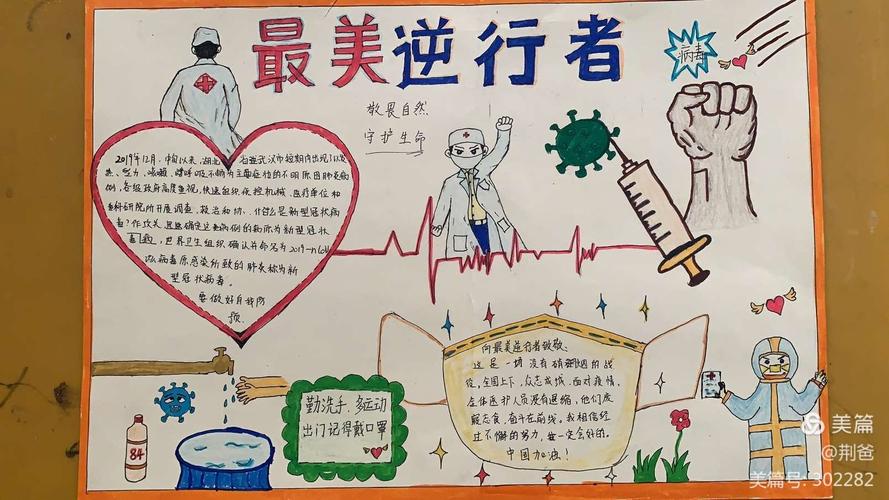 最美逆行者
病毒
敬畏自然
守护生命
2019年12月,中旬以来,湖北省武汉市短期内出现了以发
热、乏力、咳嗽、呼吸不畅为主要症状的不明原因肺炎病
例,各级政府高度重视,快速组织疾控机械、医疗单位和
科研院所开展调查、救治和协 什么是新型冠状病
毒?作攻关,迅速确定这类病例的病原为新型冠状
毒,世界卫生组织确认并命名为2019-nCoV
病毒原感染所致的肺炎称为新
型冠状病毒。
要做好自我防
预.
勤洗手、多运动
出门记得戴口罩
84
向最美逆行者致敬:
这是一场没有硝烟的战
役,全国上下,众志成城,面对疫情,
全体医护人员没有退缩,他们废
寝忘食,奋斗在前线。我相信经
过不懈的努力,一定会好的。
中国加油!
美篇
@荆爸
美篇号:302282